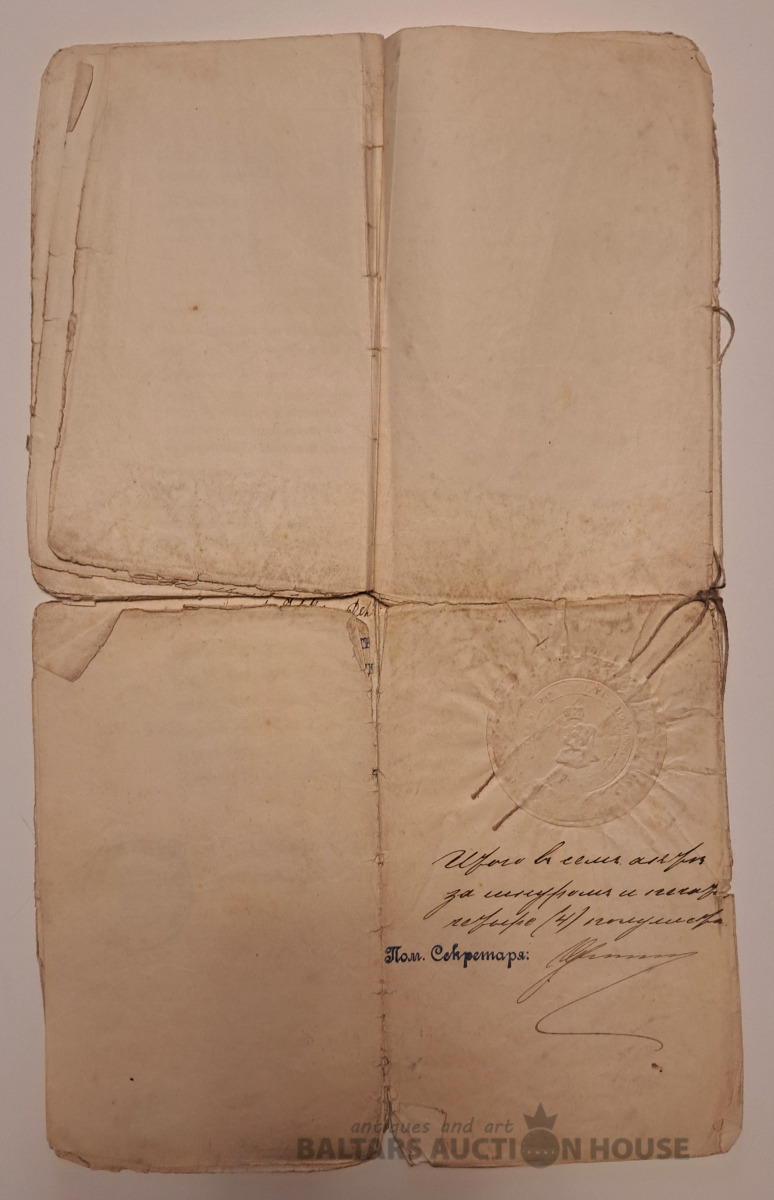 Итого въ семъ актѣ
за шнуромъ и печат
четыре (4) полулиста
Пом. Секретаря:
antiques and art
BALTARS AUCTION HOUSE